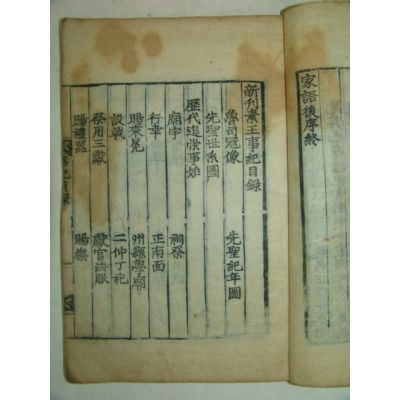 家語後序終
新刊素王事紀目録
魯司冠像
先聖世系圖 先聖紀年圖
歷代追崇事始
廟宇 祠祭
行幸 正南面
賜衮冕 州縣學廟
設戟 二仲丁祀
祭用三獻 獻官法服
賜禮器 賜樂